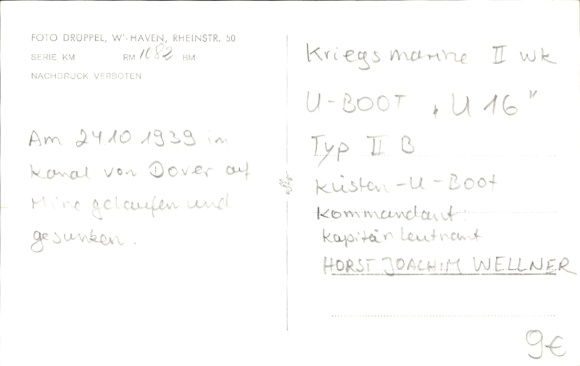 FOTO DRÜPPEL, W'-HAVEN, RHEINSTR. 50
SERIE KM RM 1082 RM
NACHDRUCK VERBOTEN
Am 24 10 1939 im
Kanal von Dover auf
Mine gelaufen und
gesunken.
Kriegsmarine II WK
U-BOOT „U 16"
Typ II B
Küsten-U-Boot
Kommandant:
Kapitänleutnant
HORST JOACHIM WELLNER
9€